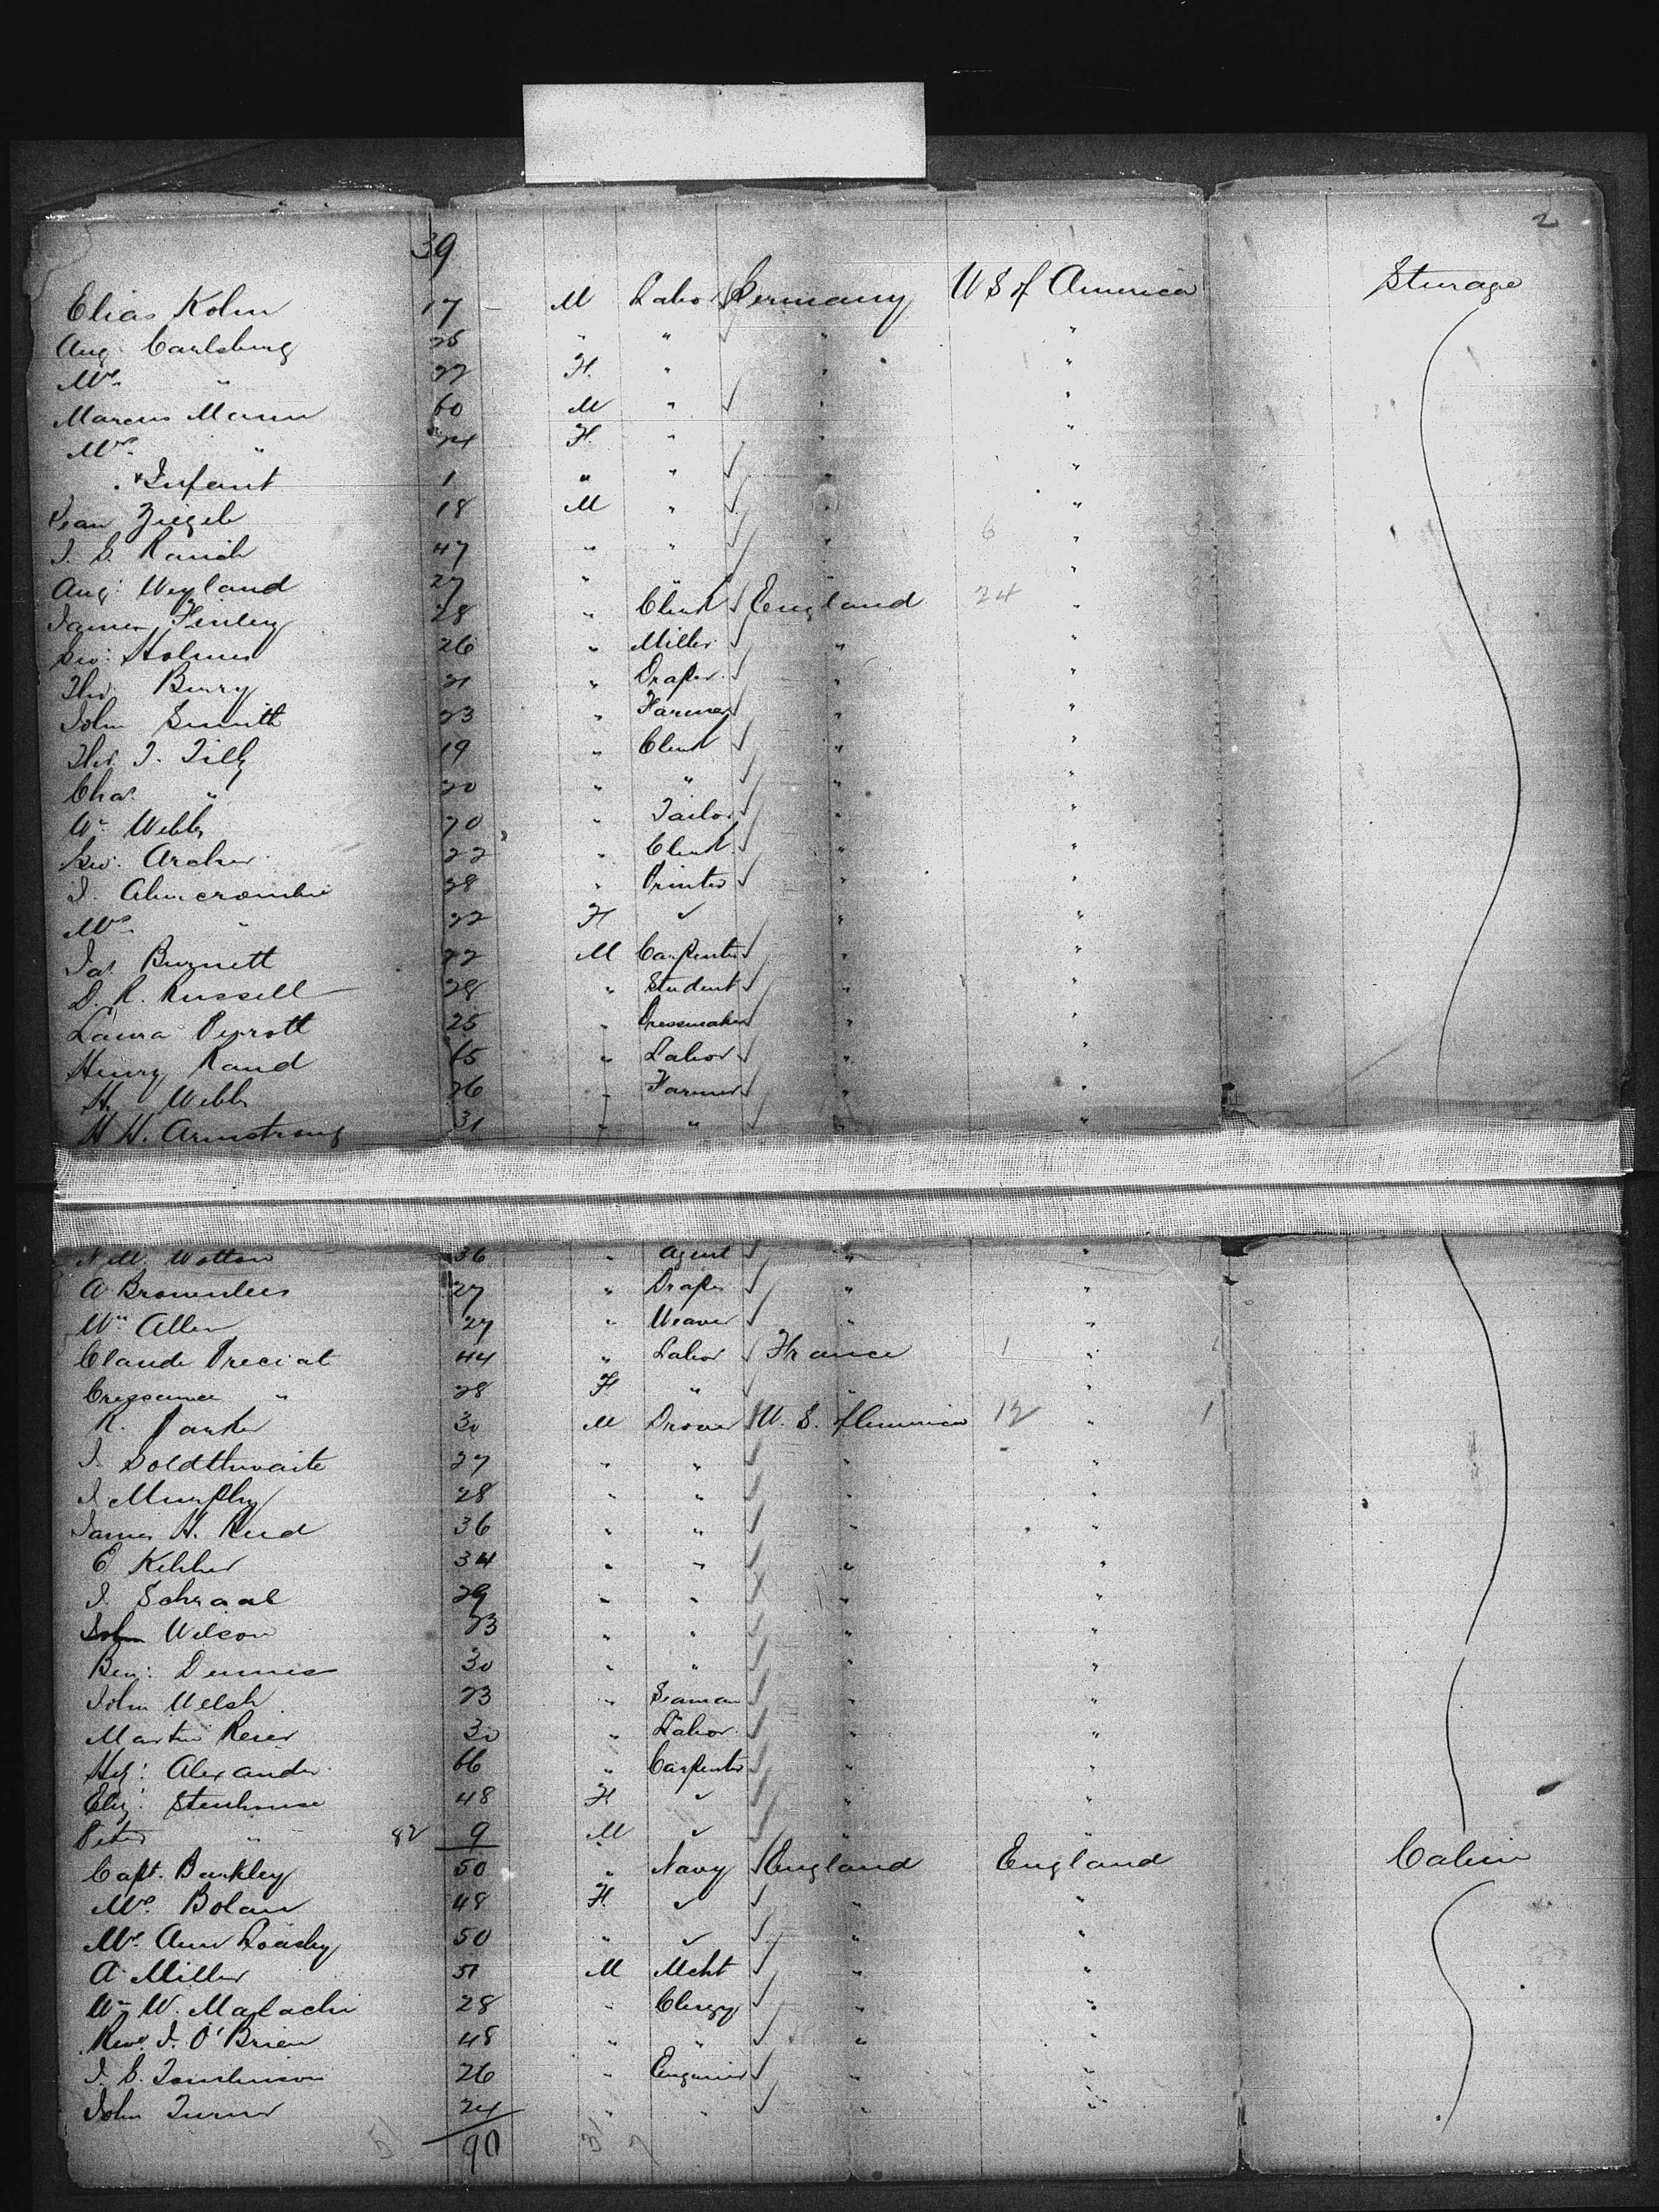 2
39
Elias Kohn 17 - M Labor Germany U S of America Steerage
Aug: Carlsburg 25 " " " "
Mrs. " 22 F. " " "
Marcus Mann 60 M " " "
Mrs. " 24 F. " " "
" Infant 1 " " " "
Jean Ziegele 18 M " " "
47 " " " 6 " 3
Aug: Weyland 27 " " " "
James Finley 28 " Clerk England 24 " 3
Geo: Holmes 26 " Miller " "
Thos. Berry 21 " Draper " "
John Smith 23 " Farmer " "
Thos. J. Tilly 19 " Clerk " "
Chas. " 20 " " " "
Wm Webb 20 " Tailor " "
Geo. Archer 22 " Clerk " "
J. Abercrombie 28 " Printer " "
Mrs. " 22 F " "
Jas. Burnett 22 M Carpenter " "
D. R. Russell 28 " Student " "
Laura Perrott 25 " Dressmaker " "
Henry Rand 65 " Labor " "
H. Webb 26 " Farmer " "
H H. Armstrong 31 " " " "
N. M. Wotton 36 " Agent " "
A Brownlees 27 " Draper " "
Wm Allen 27 " Weaver " "
Claude Preciat 44 " Labor France 1 " 1
" 28 F " " "
R. Parker 30 M Drover U. S. of America 12 " 1
J. Goldthwaite 27 " " " "
J Murphy 28 " " " "
James H. Reed 36 " " " "
E Kelcher 34 " " " "
J. Schraal 29 " " " "
John Wilson 23 " " " "
Benj: Dennis 30 " " " "
John Welsh 23 " Seaman " "
Martin Reser 30 " Labor " "
Hez: Alexander 66 " Carpenter " "
Eliz: Stenhouse 48 F. " "
Peter " 82 9 M " "
Capt. Barkley 50 " Navy England England Cabin
Mrs. Bolan 48 F. " "
Mrs. Ann Loasby 50 " " "
A Miller 51 M Mcht " "
Wm W. Malachi 28 " Clergy " "
Revd. J. O'Brien 48 " " " "
J. S. Tomlinson 26 " Engineer " "
John Turner 24 " " " "
51 90 31 7